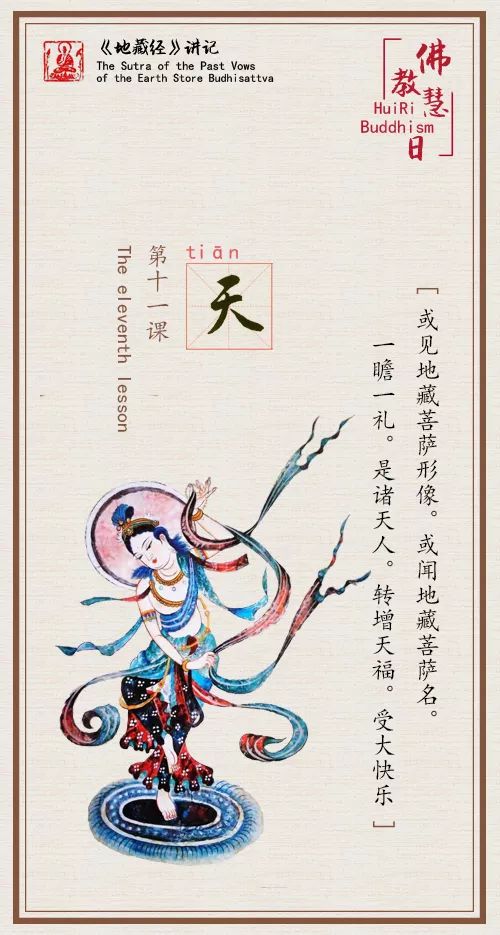 《地藏经》讲记
The Sutra of the Past Vows
of the Earth Store Budhisattva
佛教慧日
HuiRi
Buddhism
tiān
天
第十一课
The eleventh lesson
[或见地藏菩萨形像。或闻地藏菩萨名。
一瞻一礼。是诸天人。转增天福。受大快乐]